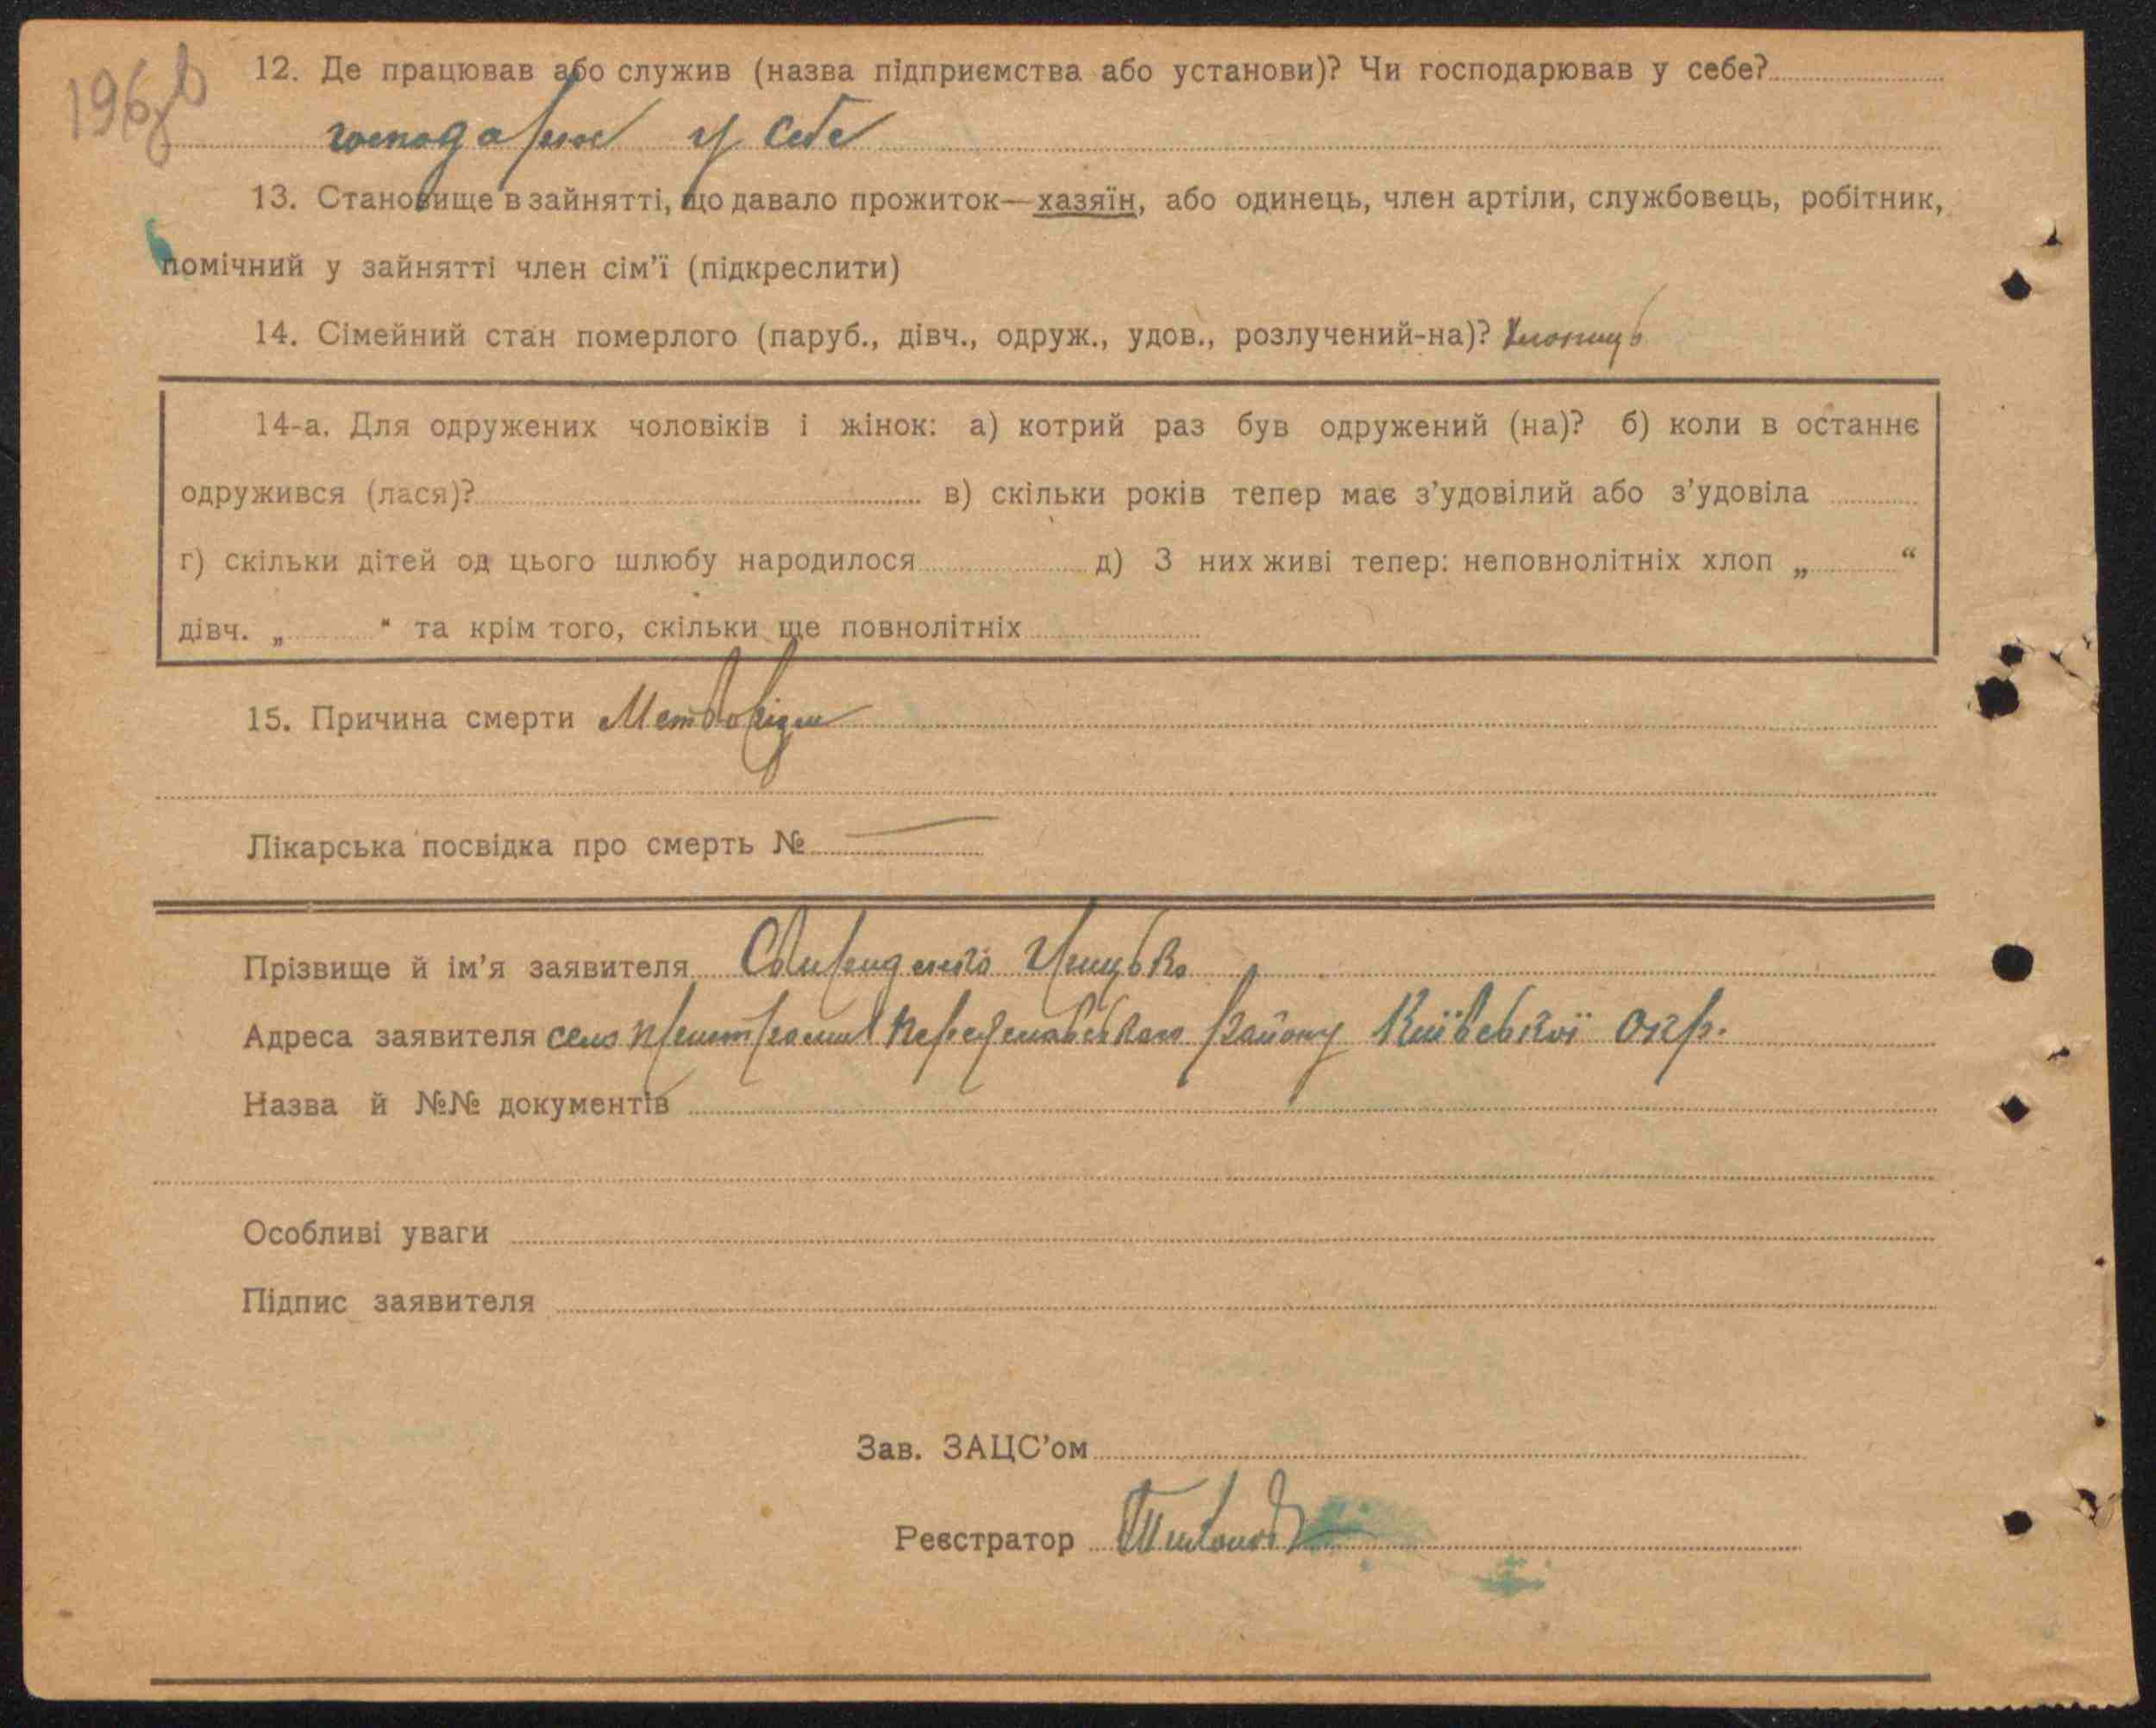 196 в
12. Де працював або служив (назва підприємства або установи)? Чи господарював у себе?
господарює у себе
13. Становище в зайнятті, що давало прожиток—хазяїн, або одинець, член артіли, службовець, робітник,
помічний у зайнятті член сім'ї (підкреслити)
14. Сімейний стан померлого (паруб., дівч., одруж., удов., розлучений-на)? Хлопець
14-а. Для одружених чоловіків і жінок: а) котрий раз був одружений (на)? б) коли в останнє
одружився (лася)? в) скільки років тепер має з'удовілий або з'удовіла
г) скільки дітей од цього шлюбу народилося д) З них живі тепер: неповнолітніх хлоп „ “
дівч. „ “ та крім того, скільки ще повнолітніх
15. Причина смерти
Лікарська посвідка про смерть № —
Прізвище й ім'я заявителя
Адреса заявителя село Переяславського району Київської Окр.
Назва й №№ документів
Особливі уваги
Підпис заявителя
Зав. ЗАЦС'ом
Реєстратор